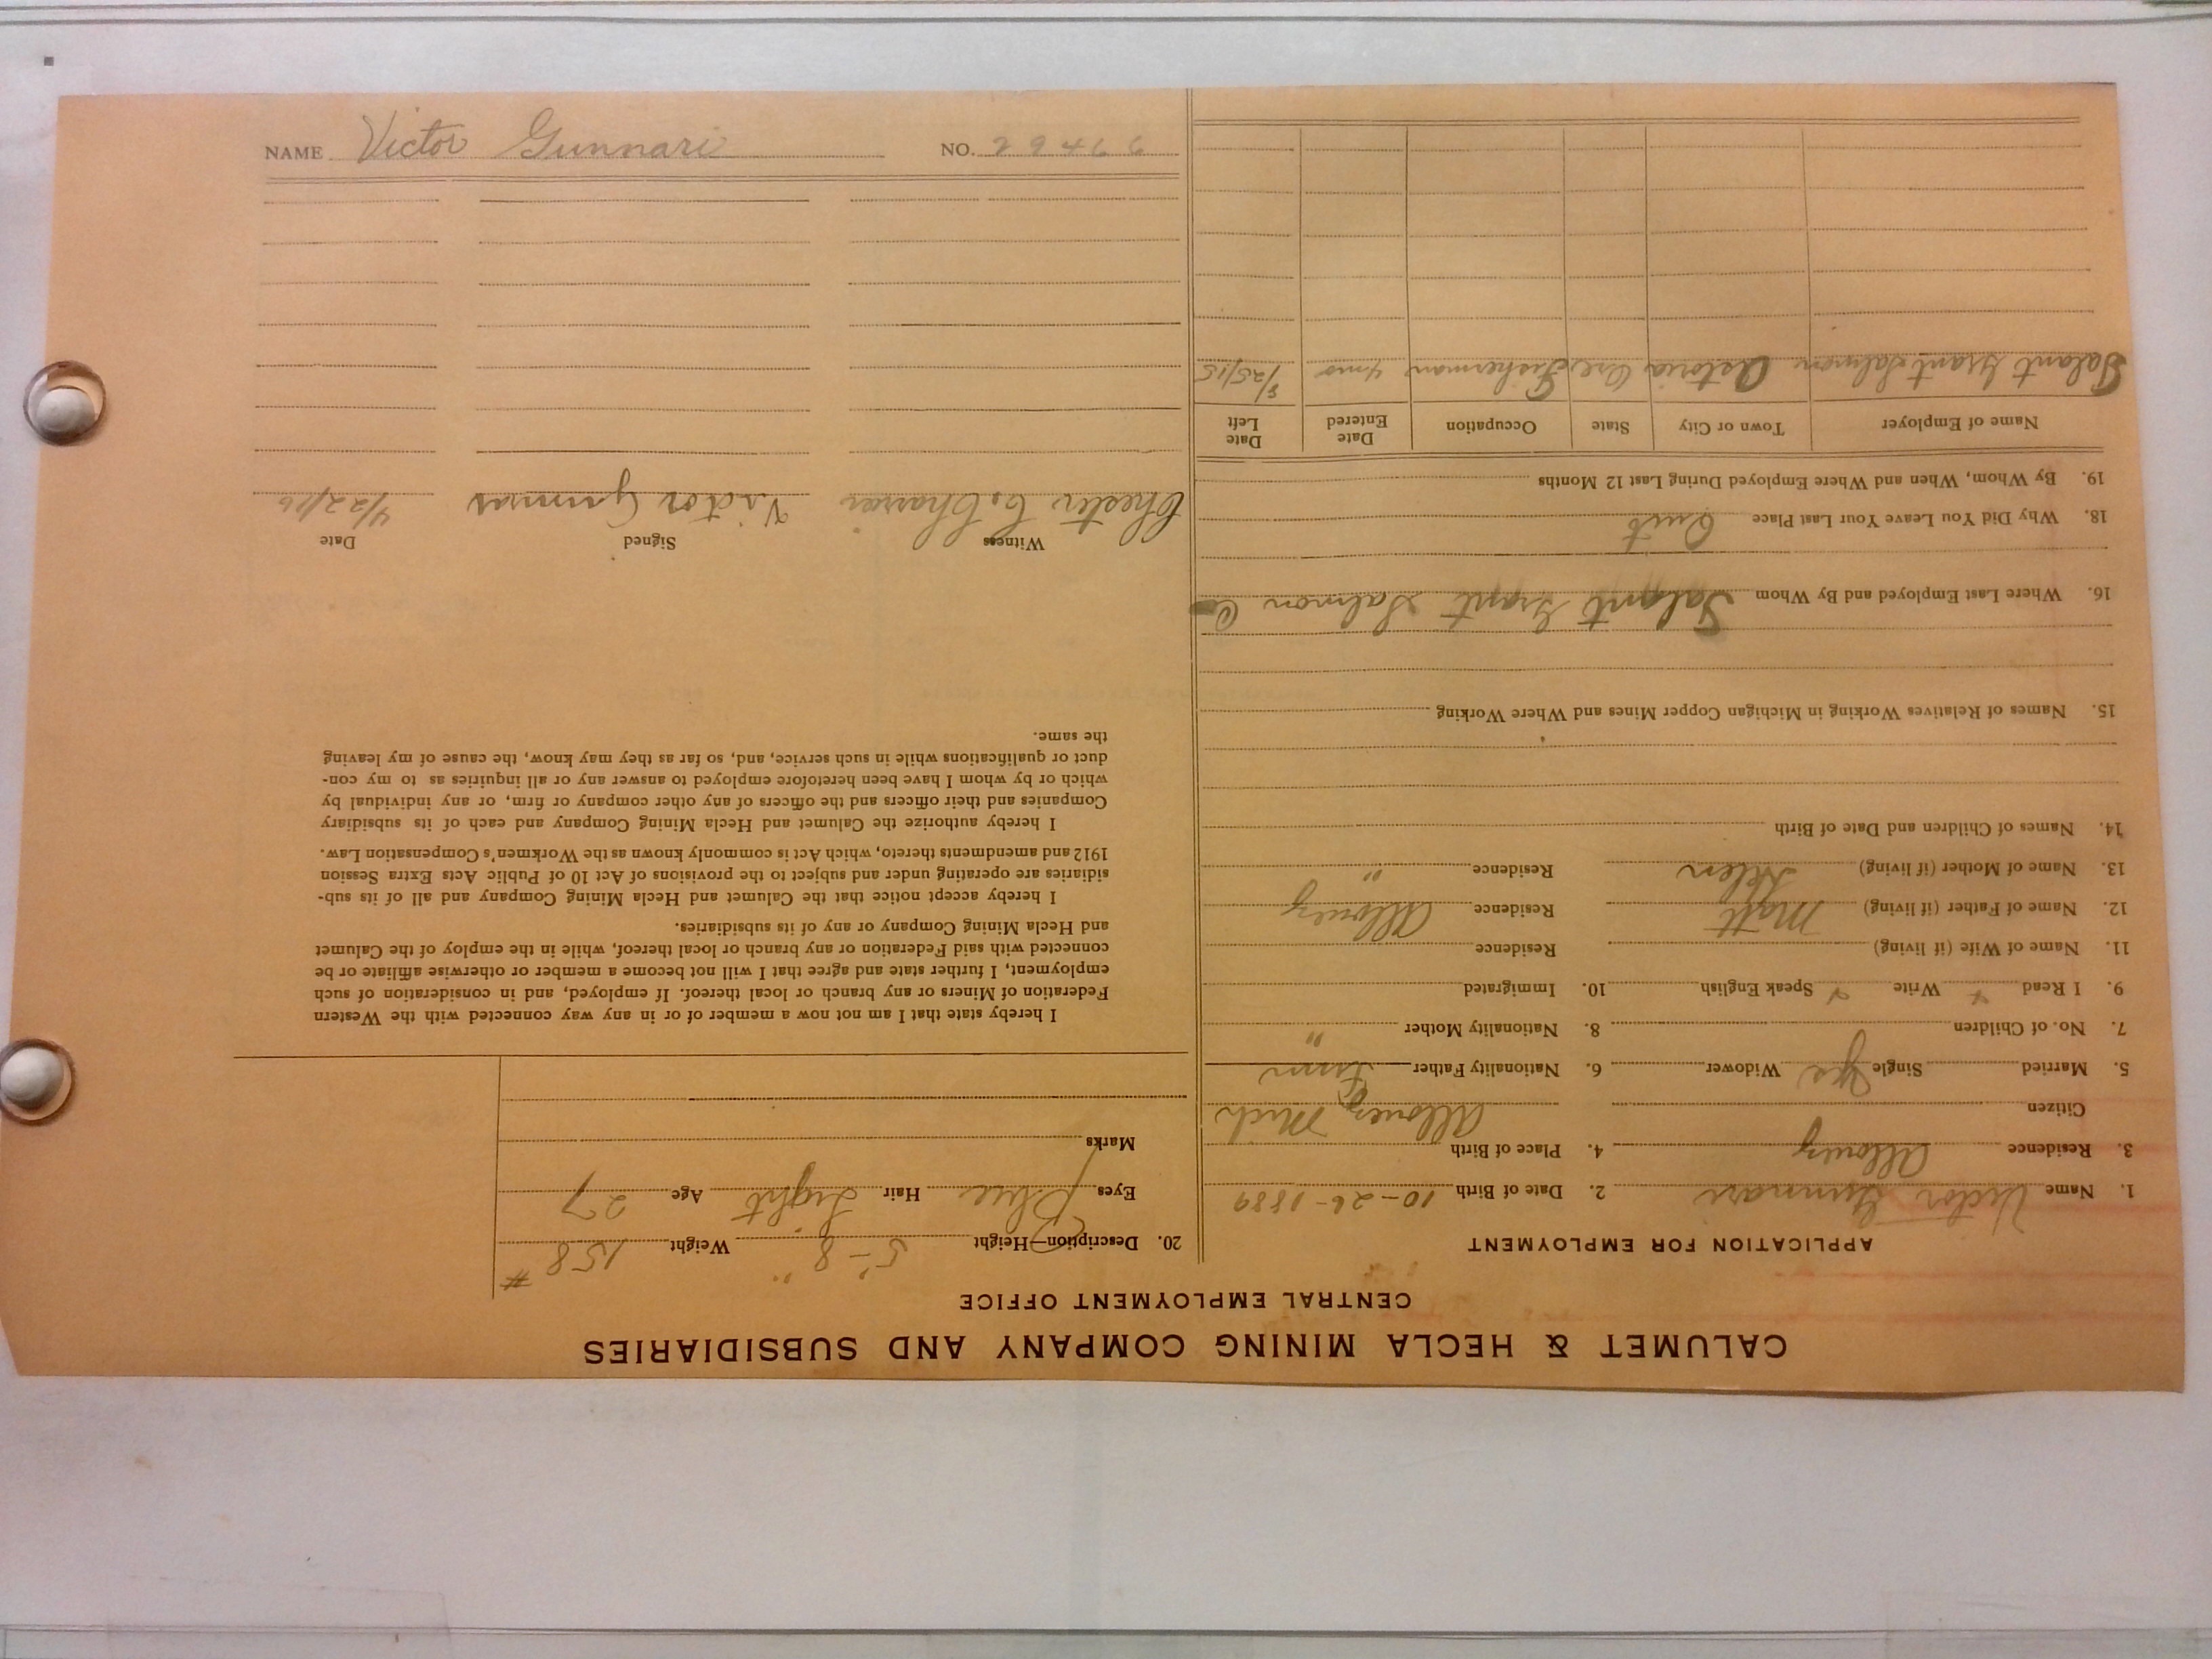 CALUMET & HECLA MINING COMPANY AND SUBSIDIARIES
CENTRAL EMPLOYMENT OFFICE
APPLICATION FOR EMPLOYMENT
1. Name Victor Gunnari 2. Date of Birth 10-26-1889
3. Residence Allouez 4. Place of Birth
Citizen Allouez Mich
5. Married Single Yes Widower 6. Nationality Father Finn
7. No. of Children 8. Nationality Mother "
9. I Read Write Speak English 10. Immigrated
11. Name of Wife (if living) Residence
12. Name of Father (if living) Matt Residence Allouez
13. Name of Mother (if living) Helen Residence "
14. Names of Children and Date of Birth
15. Names of Relatives Working in Michigan Copper Mines and Where Working
16. Where Last Employed and By Whom Grant Salmon Co
18. Why Did You Leave Your Last Place Quit
19. By Whom, When and Where Employed During Last 12 Months
Name of Employer Town or City State Occupation Date Entered Date Left
Grant Salmon Astoria Ore Fisherman 4 mo 8/25/15
20. Description—Height 5'-8" Weight 158 #
Eyes Blue Hair Light Age 27
Marks
I hereby state that I am not now a member of or in any way connected with the Western
Federation of Miners or any branch or local thereof. If employed, and in consideration of such
employment, I further state and agree that I will not become a member or otherwise affiliate or be
connected with said Federation or any branch or local thereof, while in the employ of the Calumet
and Hecla Mining Company or any of its subsidiaries.
I hereby accept notice that the Calumet and Hecla Mining Company and all of its sub-
sidiaries are operating under and subject to the provisions of Act 10 of Public Acts Extra Session
1912 and amendments thereto, which Act is commonly known as the Workmen's Compensation Law.
I hereby authorize the Calumet and Hecla Mining Company and each of its subsidiary
Companies and their officers and the officers of any other company or firm, or any individual by
which or by whom I have been heretofore employed to answer any or all inquiries as to my con-
duct or qualifications while in such service, and, so far as they may know, the cause of my leaving
the same.
Witness Signed Date
Chester C. Victor Gunnar 4/22/16
NAME Victor Gunnari NO. 29466